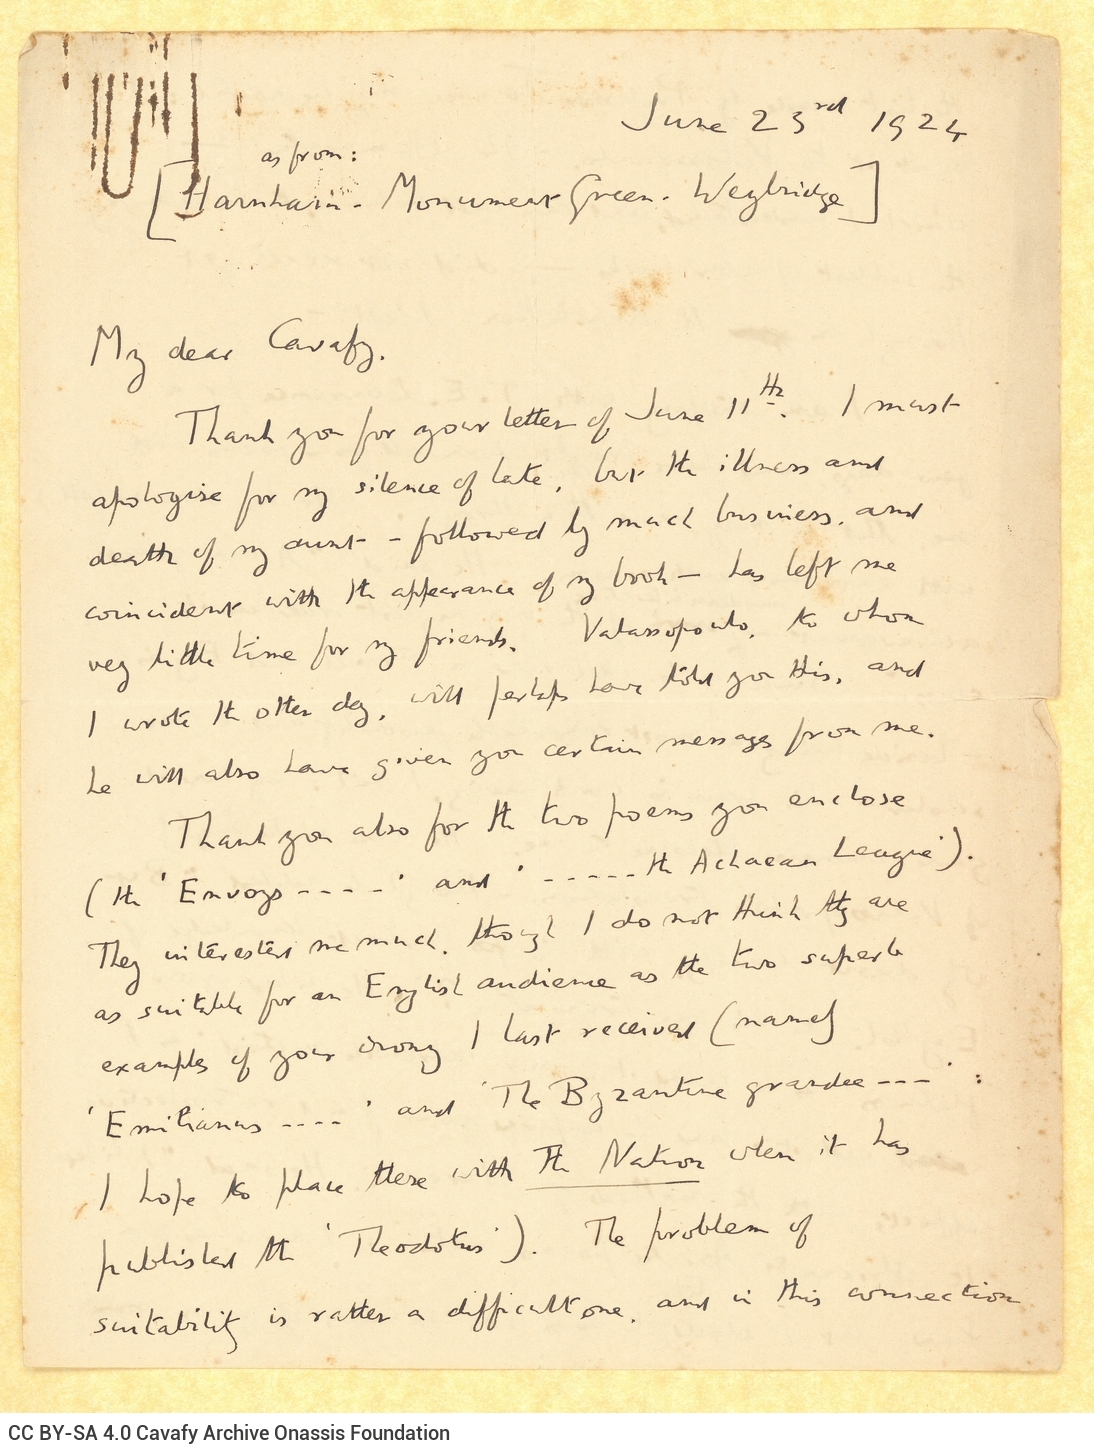 June 23rd 1924
as from:
[Harnham - Monument Green - Weybridge]
My dear Cavafy.
Thank you for your letter of June 11th. I must
apologise for my silence of late, but the illness and
death of my aunt - followed by much business, and
coincident with the appearance of my book - has left me
very little time for my friends. Valassopoulo, to whom
I wrote the other day, will perhaps have told you this, and
he will also have given you certain messages from me.
Thank you also for the two poems you enclose
(the 'Envoys - - - - -' and ' - - - - - the Achaean League').
They interested me much, though I do not think they are
as suitable for an English audience as the two superb
examples of your irony I last received (namely
'Emilianus - - - -' and 'The Byzantine grandee - - -' :
I hope to place these with The Nation when it has
published the 'Theodotus'). The problem of
suitability is rather a difficult one, and in this connection
CC BY-SA 4.0 Cavafy Archive Onassis Foundation